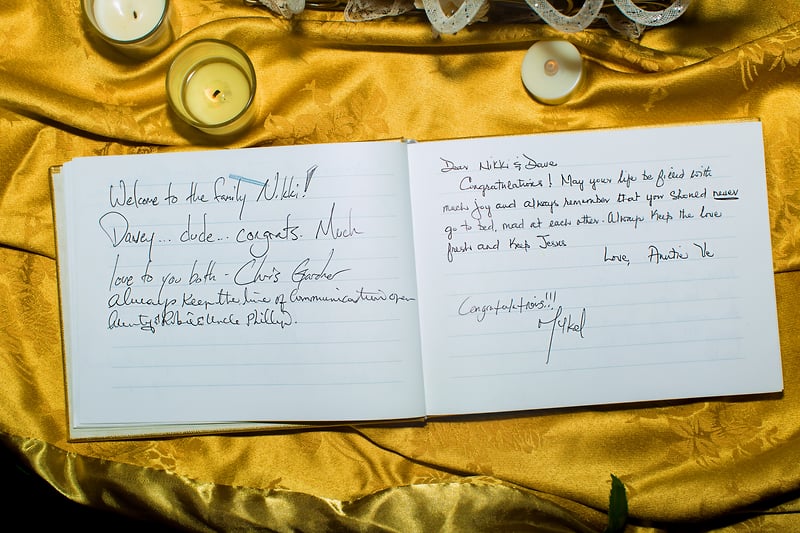 Welcome to the family Nikki!
Davey... dude... congrats. Much
love to you both - Chris Gardner
always keep the line of communication open
Aunty Uncle Phillip.
Dear Nikki & Dave
Congratulations! May your life be filled with
much joy and always remember that you should never
go to bed, mad at each other. Always keep the love
fresh and keep Jesus
Love, Auntie Ve
Congratulations!!!
Mykel